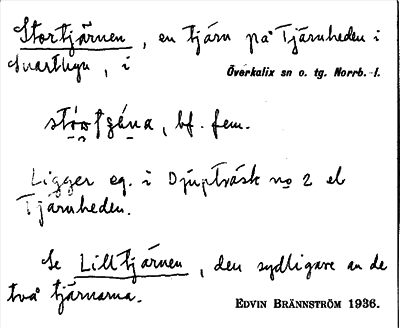 Stortjärnen, en tjärn på Tjärnheden i
Svartbyn, i
Överkalix sn o. tg. Norrb. l.
bf. fem.
Ligger eg. i Djupträsk no 2 el
Tjärnheden.
Se Lilltjärnen, den sydligare av de
två tjärnarna.
EDVIN BRÄNNSTRÖM 1936.